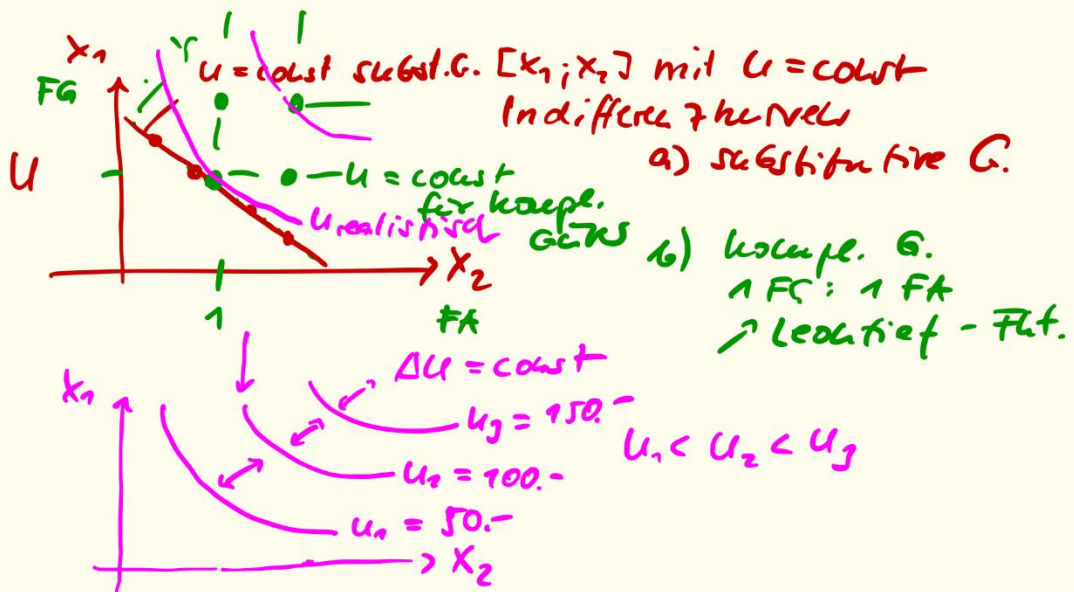 x₁
FG
U
U = const subst. G. [x₁; x₂] mit U = const
Indifferenzkurven
a) substitutive G.
U = const
für kompl.
Güter
U realistisch
b) kompl. G.
1 FG : 1 FA
↗ Leontief - Fkt.
x₂
1
FA
x₁
ΔU = const
U₃ = 150.-
U₂ = 100.-
U₁ = 50.-
U₁ < U₂ < U₃
x₂